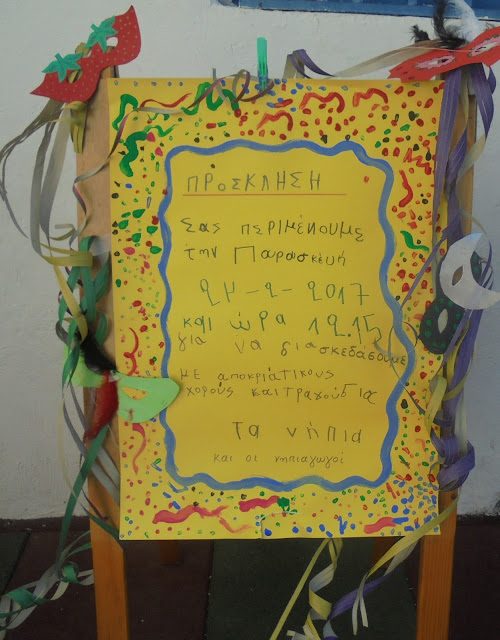 ΠΡΟΣΚΛΗΣΗ
Σας περιμένουμε
την Παρασκευή
24-2-2017
και ώρα 12.15
για να διασκεδάσουμε
με αποκριάτικους
χορούς και τραγούδια
Τα νήπια
και οι νηπιαγωγοί